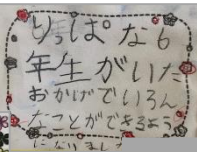 りっぱな6
年生がいた
おかげでいろん
なことができるよう
になりました